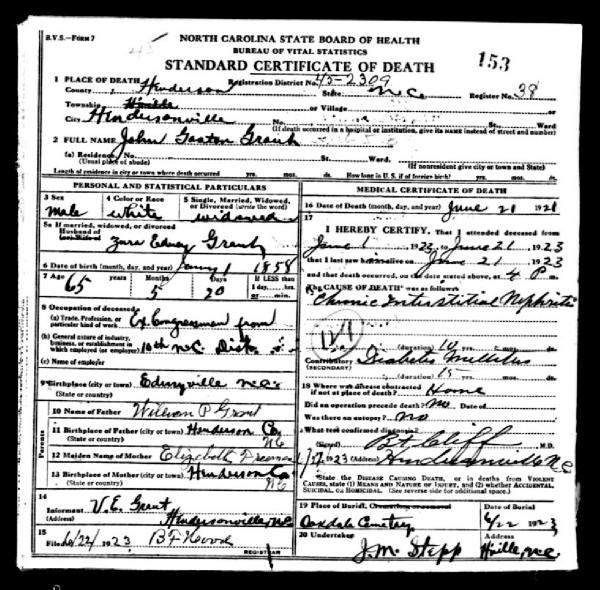 B.V.S.—FORM 7
NORTH CAROLINA STATE BOARD OF HEALTH
BUREAU OF VITAL STATISTICS
STANDARD CERTIFICATE OF DEATH
153
1 PLACE OF DEATH Registration District No. 45-2309
County Henderson State N.C. Register No. 38
Township H'ville or Village
City Hendersonville No. St. Ward
(If death occurred in a hospital or institution, give its NAME instead of street and number)
2 FULL NAME John Gaston Grant
(a) Residence. No. St. Ward
(Usual place of abode) (If nonresident give city or town and State)
Length of residence in city or town where death occurred yrs. mos. ds. How long in U. S. if of foreign birth? yrs. mos. ds.
PERSONAL AND STATISTICAL PARTICULARS
3 Sex 4 Color or Race 5 Single, Married, Widowed, or Divorced (write the word)
male white widowed
5a If married, widowed, or divorced
Husband of
(or) Wife of Zura Edney Grant
6 Date of birth (month, day, and year) Jany 1 1858
7 Age Years Months Days If LESS than
65 5 20 1 day, hrs.
or min.
8 Occupation of deceased
(a) Trade, Profession, or particular kind of work Ex Congressman from
(b) General nature of industry, business, or establishment in which employed (or employer) 10th N.C. Dist.
(c) Name of employer
9 Birthplace (city or town) Edneyville N.C.
(State or country)
Parents
10 Name of Father William P Grant
11 Birthplace of Father (city or town) Henderson Co.
(State or country) N.C.
12 Maiden Name of Mother Elizabeth Freeman
13 Birthplace of Mother (city or town) Henderson Co
(State or country) N.C.
14
Informant V. E. Grant
(Address) Hendersonville, N.C.
15
Filed 6/22/1923 B F Hood
REGISTRAR
MEDICAL CERTIFICATE OF DEATH
16 Date of Death (month, day, and year) June 21 1921
17
I HEREBY CERTIFY, That I attended deceased from
June 1 1923 to June 21, 1923
that I last saw him alive on June 21, 1923
and that death occurred, on the date stated above, at 4 P m.
The CAUSE OF DEATH was as follows:
Chronic Interstitial Nephritis
(duration) 10 yrs. mos. ds.
Contributory Diabetis Mellitus
(SECONDARY)
(duration) 15 yrs. mos. ds.
18 Where was disease contracted
if not at place of death? Home
Did an operation precede death? No Date of
Was there an autopsy? No
What test confirmed diagnosis?
(Signed) M.D.
1923 (Address) Hendersonville N.C.
* STATE THE DISEASE CAUSING DEATH, or in deaths from VIOLENT CAUSES, state (1) MEANS AND NATURE OF INJURY, and (2) whether ACCIDENTAL, SUICIDAL, or HOMICIDAL. (See reverse side for additional space.)
19 Place of Burial, Cremation, or removal Date of Burial
Oakdale Cemetery 6/22 1923
20 Undertaker Address
J.M. Stepp H'ville, N.C.